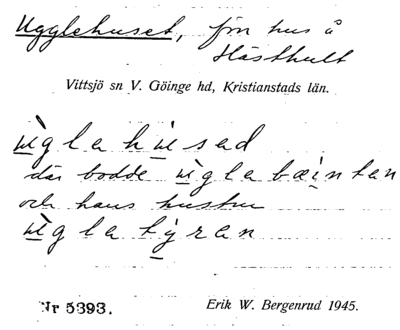 Ugglehuset, fӧn hus å
Hästhult
Vittsjö sn V. Göinge hd, Kristianstads län.
ùglahusad
där bodde ùglabæintan
och hans hustru
ùglatyran
Nr 5393.
Erik W. Bergenrud 1945.